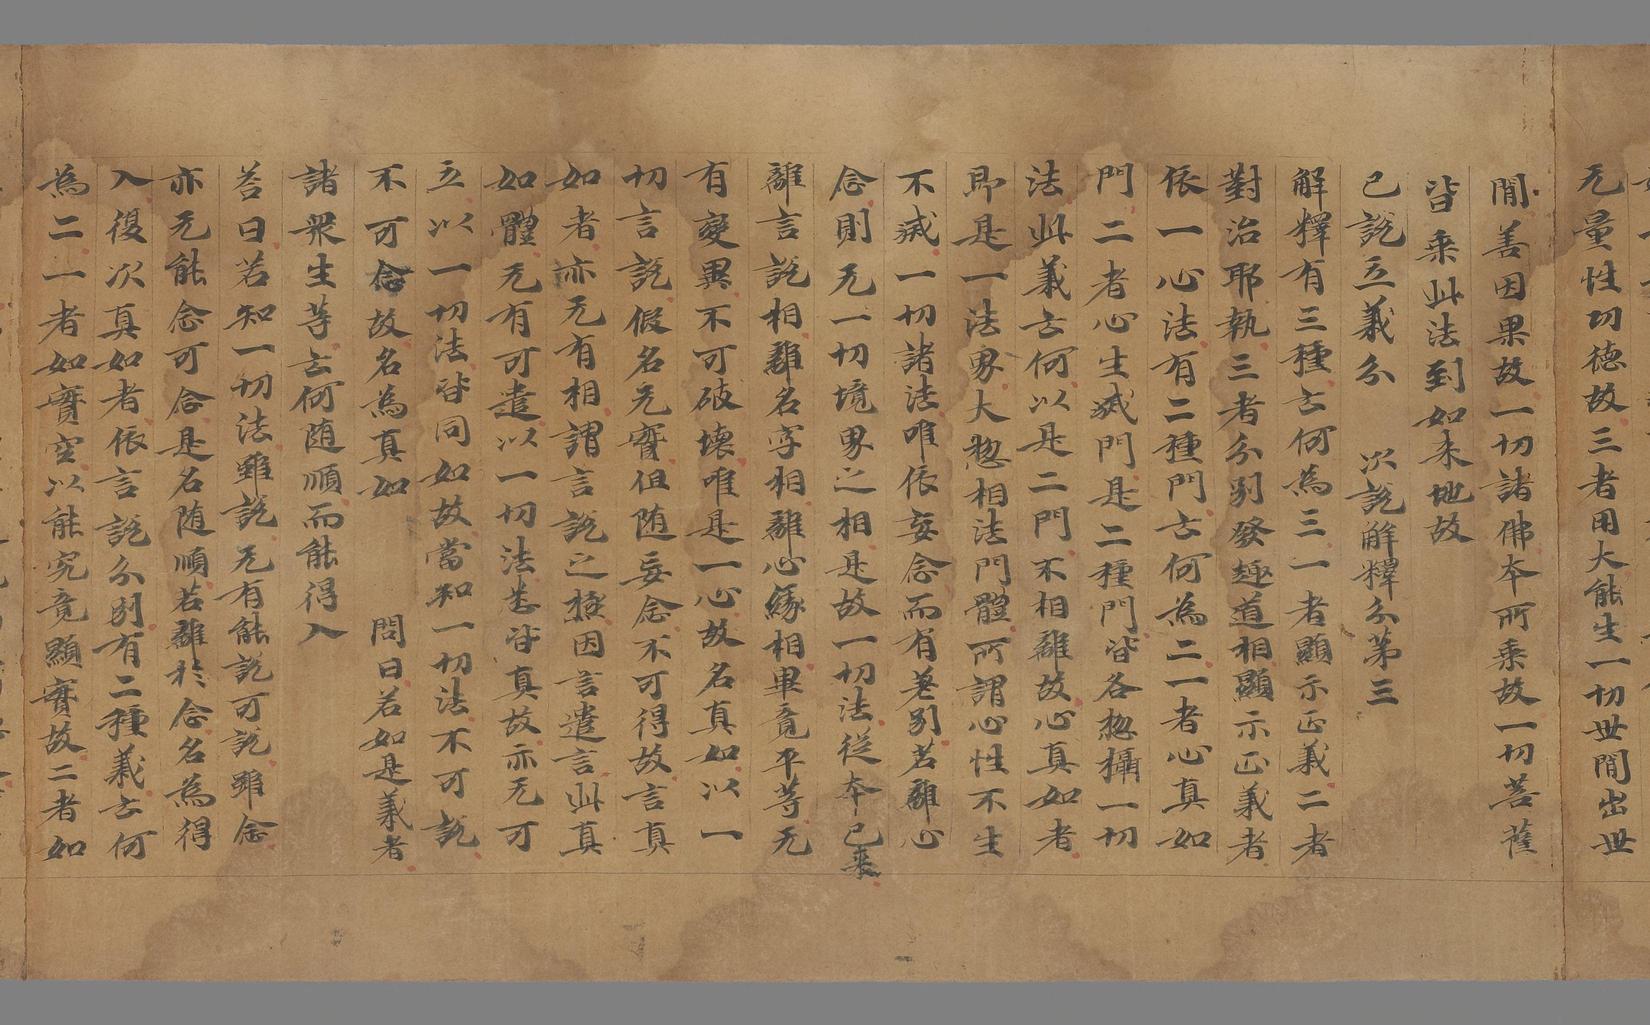 无量性功德故三者用大能生一切世間出世
間善因果故一切諸佛本所乘故一切菩薩
皆乘此法到如来地故
已說立義分　次說解釋分第三
解釋有三種云何為三一者顯示正義二者
對治耶執三者分別發趣道相顯示正義者
依一心法有二種門云何為二一者心真如
門二者心生滅門是二種門皆各惣攝一切
法此義云何以是二門不相離故心真如者
即是一法界大惣相法門體所謂心性不生
不滅一切諸法唯依妄念而有差別若離心
念則无一切境界之相是故一切法從本已来
離言說相離名字相離心緣相畢竟平等无
有變異不可破壞唯是一心故名真如以一
切言說假名无實但随妄念不可得故言真
如者亦无有相謂言說之極因言遣言此真
如體无有可遣以一切法悉皆真故亦无可
立以一切法皆同如故當知一切法不可說
不可念故名為真如　問曰若如是義者
諸衆生等云何随順而能得入
荅曰若知一切法雖說无有能說可說雖念
亦无能念可念是名随順若離於念名為得
入復次真如者依言說分別有二種義云何
為二一者如實空以能究竟顯實故二者如